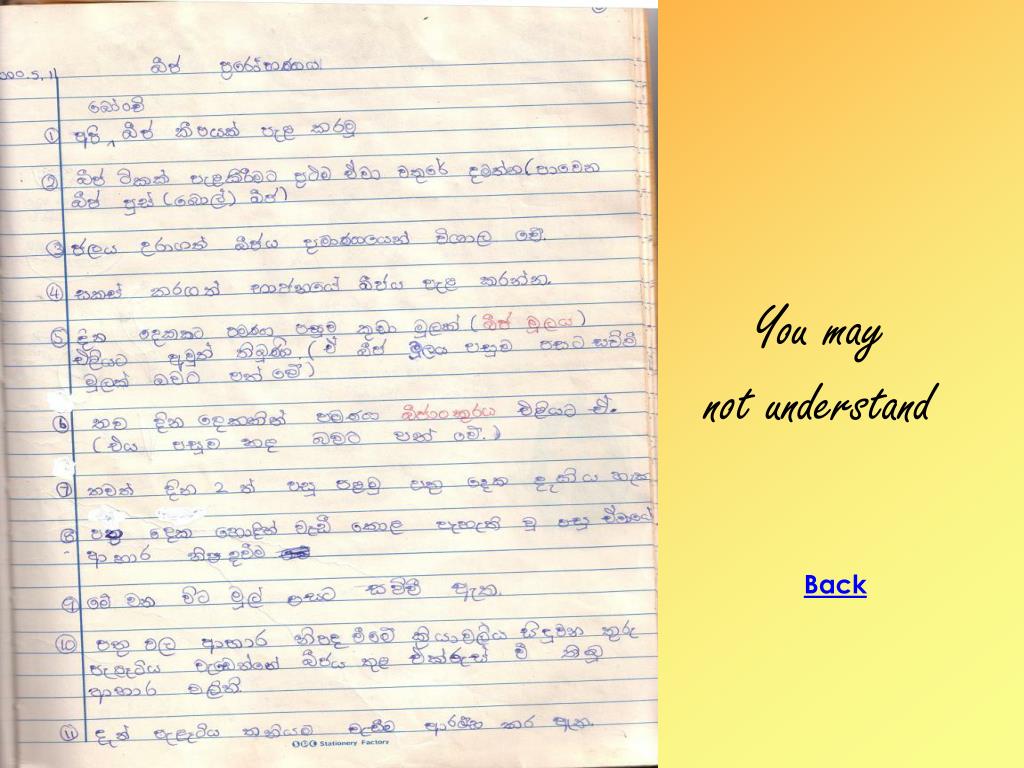 බීජ ප්‍රරෝහණය
බෝංචි
① අපි බීජ කීපයක් පැළ කරමු
② බීජ ටිකක් පැළකිරීමට ප්‍රථම ඒවා වතුරේ දමන්න (පාවෙන
බීජ පුස් (බොල්) බීජ)
③ ජලය උරාගත් බීජය ප්‍රමාණයෙන් විශාල වේ.
④ සකස් කරගත් භාජනයේ බීජය පැළ කරන්න.
⑤ දින දෙකකට පමණ පසුව කුඩා මුලක් (බීජ මූලය)
එළියට ඇවුත් තිබුණි. (ඒ බීජ මූලය පසුව පසට සවිවී
මුලක් බවට පත් වේ)
⑥ තව දින දෙකකින් පමණ බීජාංකුරය එළියට ඒ.
(එය පසුව කඳ බවට පත් වේ.)
⑦ තවත් දින 2 ක් පසු පළමු පත්‍ර දෙක දැකිය හැක
⑧ පත්‍ර දෙක හොඳින් වැඩී කොළ පැහැති වූ පසු ඒවායේ
ආහාර නිපදවීම
⑨ මේ වන විට මුල් පසට සවිවී ඇත.
⑩ පත්‍ර වල ආහාර නිපදවීමේ ක්‍රියාවලිය සිදුවන තුරු
පැළෑටිය වැඩෙන්නේ බීජය තුළ එක්රැස් වී තිබූ
ආහාර වලිනි.
⑪ දැන් පැළෑටිය තනියම වැඩීම ආරම්භ කර ඇත.
Stationery Factory
You may
not understand
Back